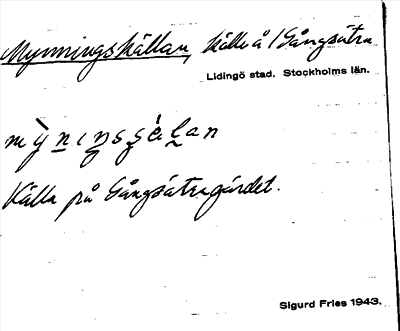 Mynningskällan, källa å Gångsätra
Lidingö stad. Stockholms län.
Källa på Gångsätragärdet.
Sigurd Fries 1943.